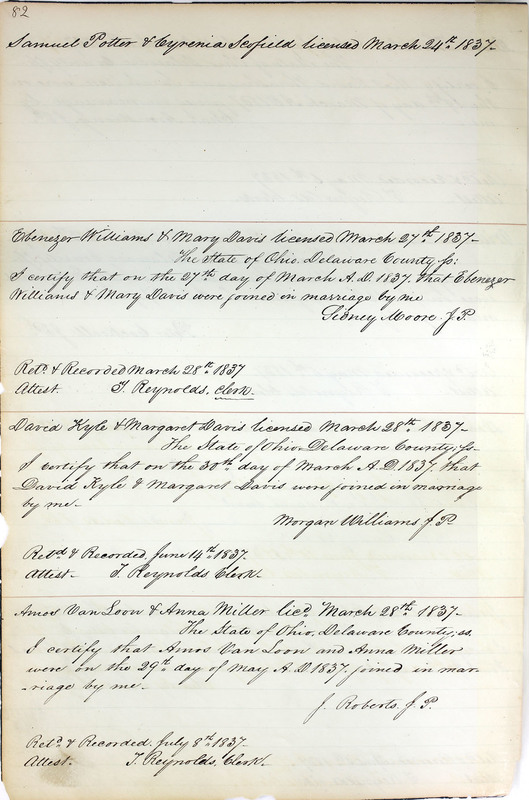 82
Samuel Potter & Cyrenia Scofield licensed March 24th 1837-
Ebenezer Williams & Mary Davis licensed March 27th 1837-
The state of Ohio. Delaware County ss:
I certify that on the 27th day of March A.D. 1837. that Ebenezer
Williams & Mary Davis were joined in marriage by me
Sidney Moore J.P.
Retd. & Recorded March 28th 1837
Attest. T. Reynolds. Clerk.
David Kyle & Margaret Davis licensed March 28th 1837-
The State of Ohio. Delaware County, ss-
I certify that on the 30th day of March A.D. 1837. that
David Kyle & Margaret Davis were joined in marriage
by me-
Morgan Williams J.P.
Retd & Recorded, June 14th 1837.
Attest- T. Reynolds Clerk-
Amos Van Loon & Anna Miller licd. March 28th 1837-
The State of Ohio, Delaware County; ss.
I certify that Amos Van Loon and Anna Miller
were on the 29th day of May A.D. 1837. joined in mar-
-riage by me-
J. Roberts. J.P.
Retd. & Recorded. July 8th 1837-
Attest. T. Reynolds, Clerk-